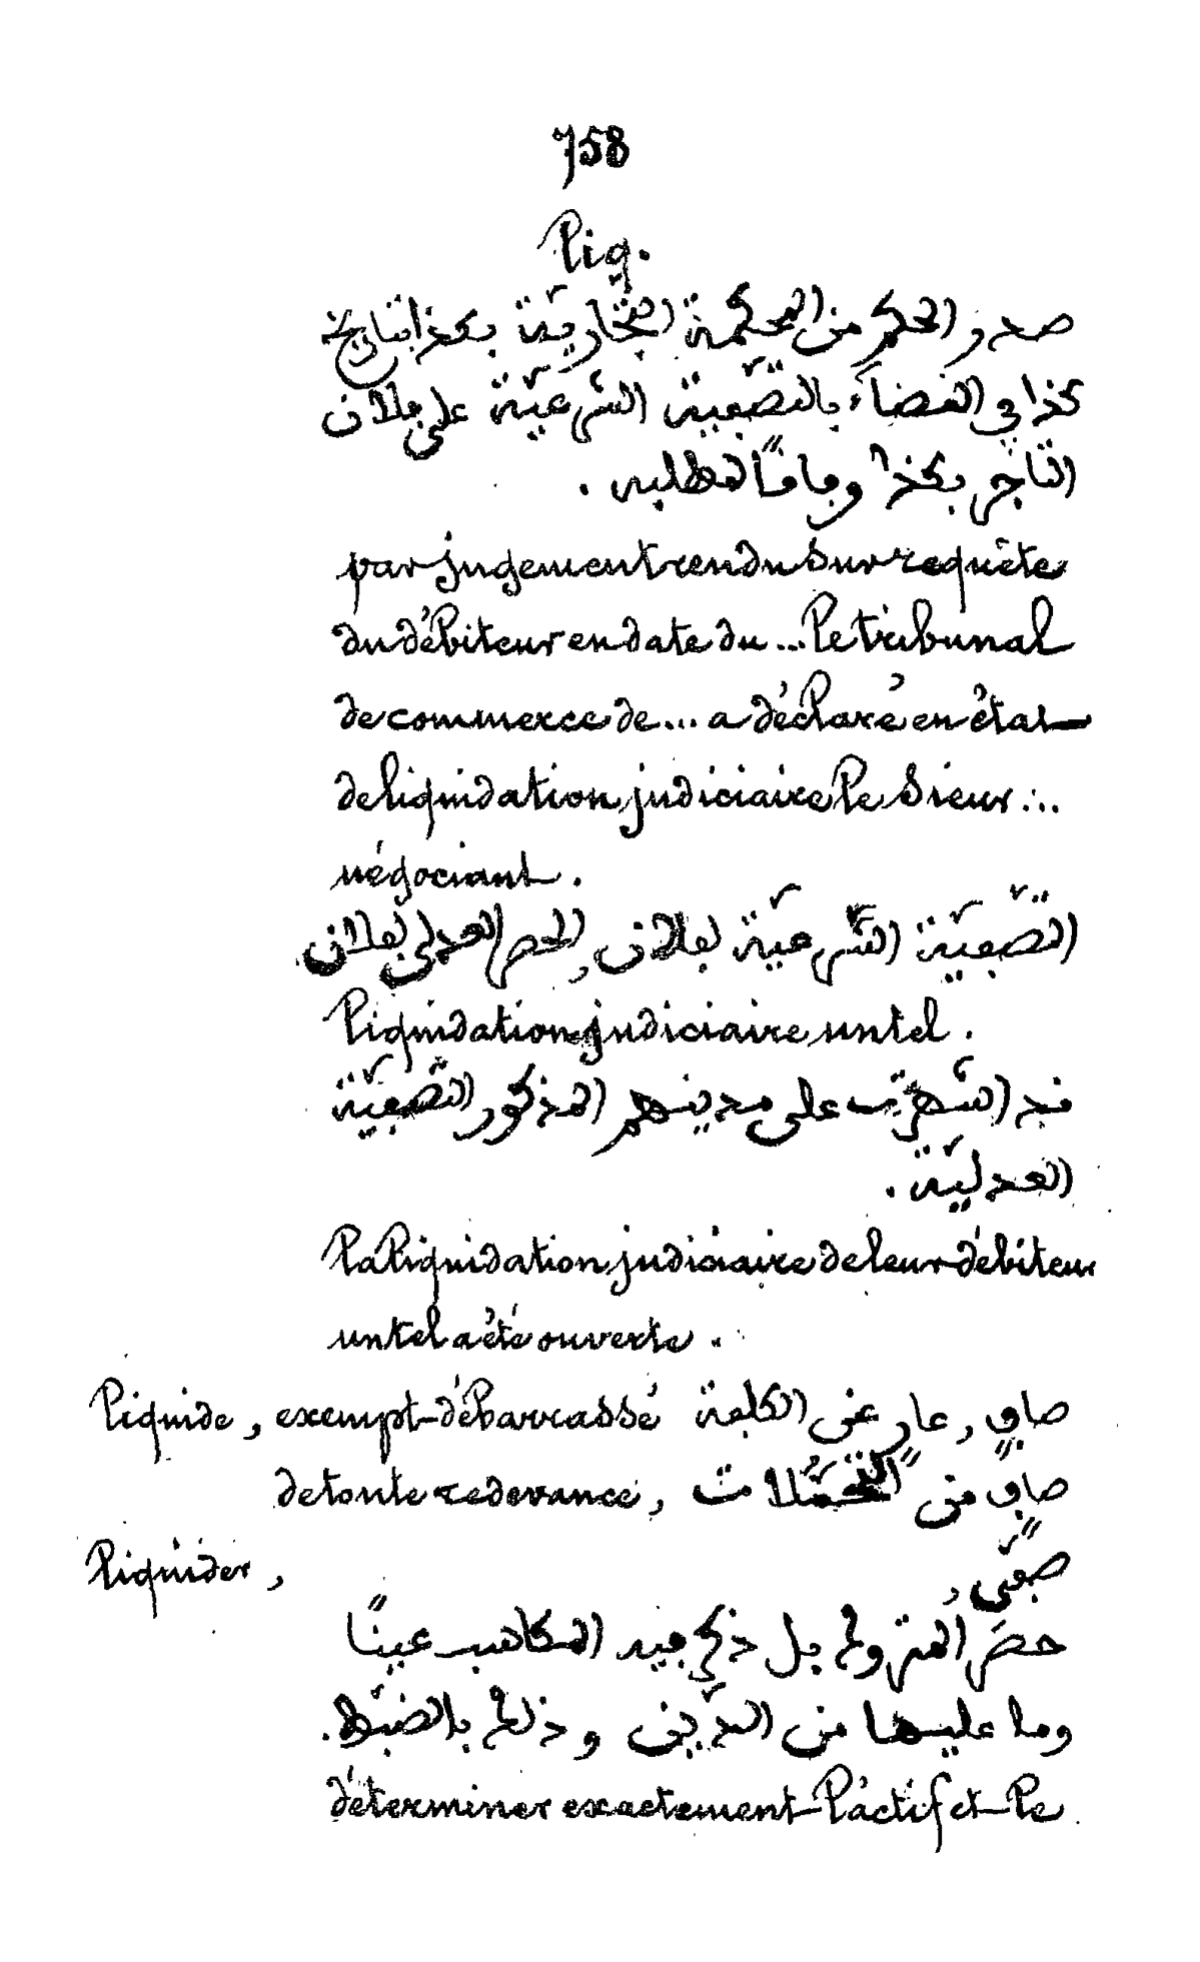 758
Liq.
صدر الحكم من المحكمة التجاريّة بكذا بتاريخ
كذا في القضاء بالتصفية الشرعيّة على فلان
التاجر بكذا وفاقًا لمطلبه .
par jugement rendu sur requête
du débiteur en date du ... le tribunal
de commerce de ... a déclaré en état
de liquidation judiciaire le Sieur ...
négociant .
التّصفيّة الشّرعيّة لفلان , الحصر العدلي لفلان .
liquidation judiciaire un tel .
قد اشهرت على مدينهم المذكور التّصفيّة
العدليّة .
la liquidation judiciaire de leur débiteur
un tel a été ouverte .
Liquide , exempt-débarrassé صافٍ , عارٍ عن الكلفة
de toute redevance , صافٍ من التحمّلات
Liquider , صفّى ,
حصَر المتروك بل ذكر فيه المكاسب عينًا
وما عليها من الدّين و ذلك بالضّبط .
déterminer exactement l'actif et le